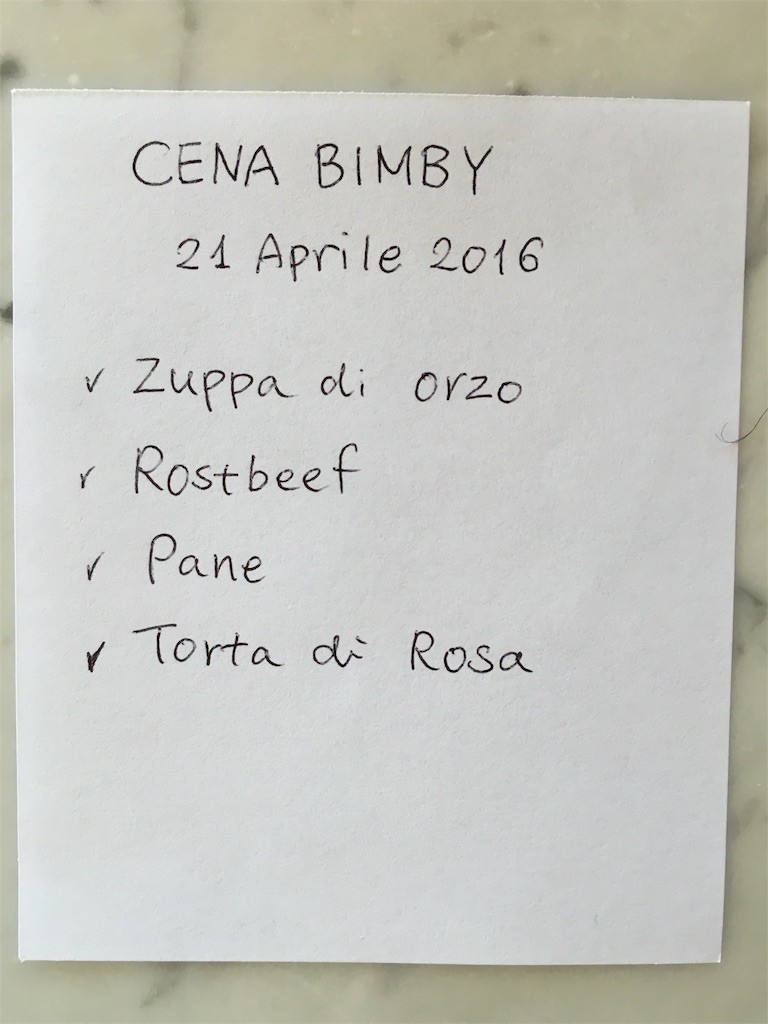 CENA BIMBY
21 Aprile 2016
✓ Zuppa di orzo
✓ Rostbeef
✓ Pane
✓ Torta di Rosa